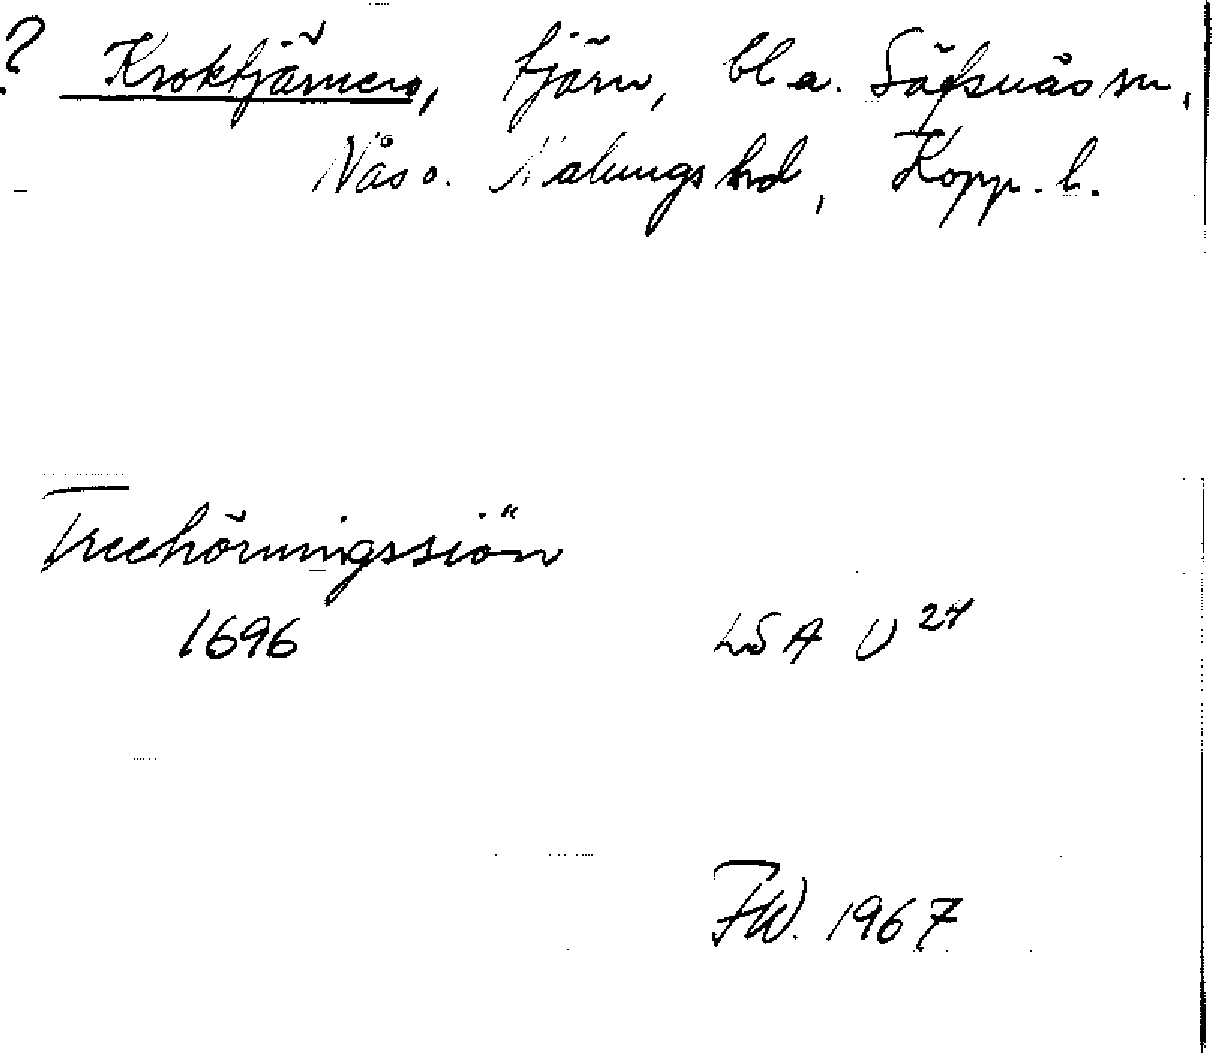 ? Kroktjärnen, tjärn, bl a. Säfsnäs sn,
Nås o. Malungs hd, Kopp. l.
Treehörningssiön
1696 LSA U 27
FW. 1967